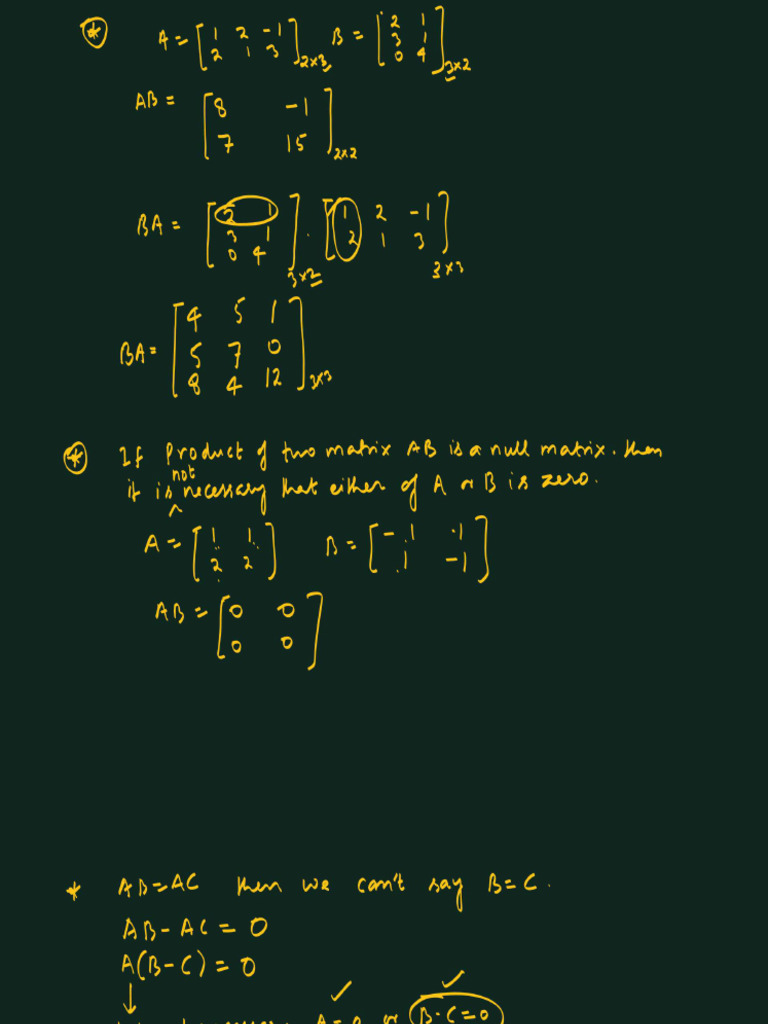 * A = [1 2 -1; 2 1 3]2×3 B = [2 1; 3 1; 0 4]3×2
AB = [8 -1; 7 15]2×2
BA = [2 1; 3 1; 0 4]3×2 . [1 2 -1; 2 1 3]3×3
BA = [4 5 1; 5 7 0; 8 4 12]3×3
* If Product of two matrix AB is a null matrix. then
it is not necessary that either of A or B is zero.
A = [1 1; 2 2] B = [-1 1; 1 -1]
AB = [0 0; 0 0]
* AB=AC then we can't say B=C.
AB-AC = 0
A(B-C) = 0
↓ ✓ ✓
A=0 or B-C=0